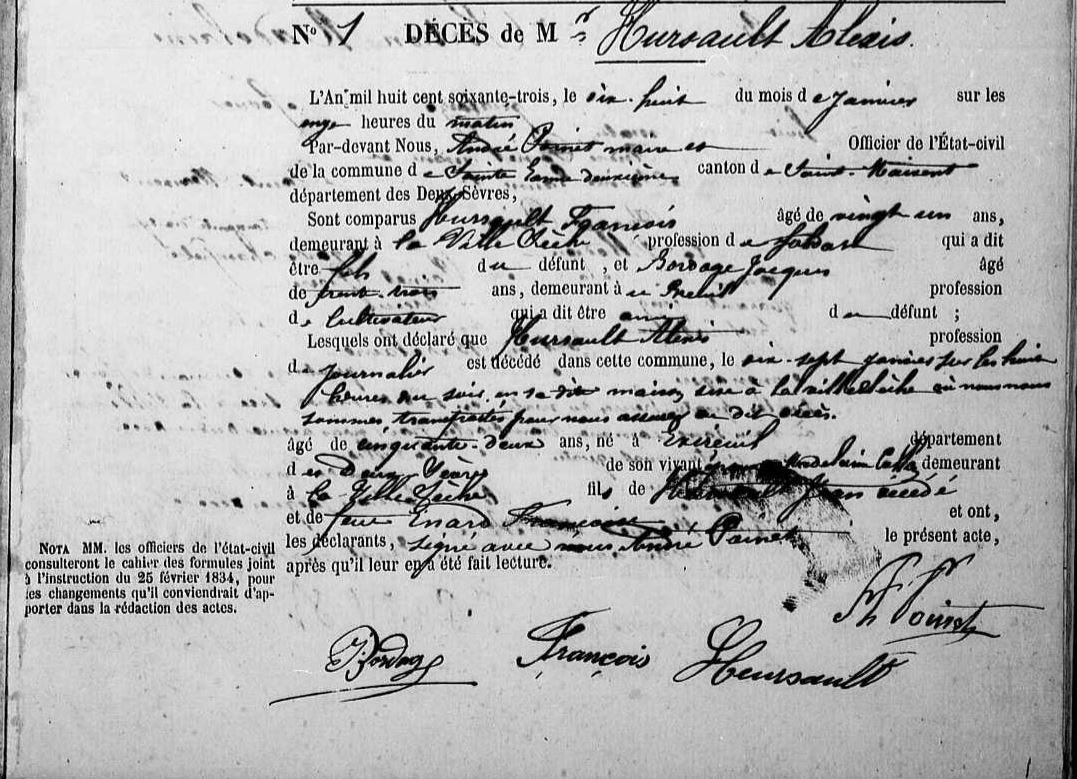 No 1 DÉCÈS de Mr Hursault Alexis.
L'An mil huit cent soixante-trois, le dix-huit du mois de Janvier sur les
onze heures du matin
Par-devant Nous, André Poinet maire et Officier de l'État-civil
de la commune de Sainte Eanne deuxième canton de Saint-Maixent
département des Deux-Sèvres,
Sont comparus Hursault François âgé de vingt un ans,
demeurant à la Ville Dèche profession de qui a dit
être fils du défunt, et Bordage Jacques âgé
de trent-trois ans, demeurant à Breuil profession
de Cultivateur qui a dit être ami du défunt ;
Lesquels ont déclaré que Hursault Alexis profession
de journalier est décédé dans cette commune, le dix-sept janvier sur les huit
heures du soir, en sa dite maison, sise à la où nous nous
sommes transportés pour nous assurer du dit décès.
âgé de cinquante-deux ans, né à Exireuil département
des Deux Sèvres de son vivant demeurant
à la Ville Dèche fils de Jean décédé
et de feue Enard Françoise et ont,
les déclarants, signé avec nous André Poinet le présent acte,
après qu'il leur en a été fait lecture.
NOTA MM. les officiers de l'état-civil
consulteront le cahier des formules joint
à l'instruction du 25 février 1834, pour
les changements qu'il conviendrait d'ap-
porter dans la rédaction des actes.
Poinet
J Bordage François Heursault